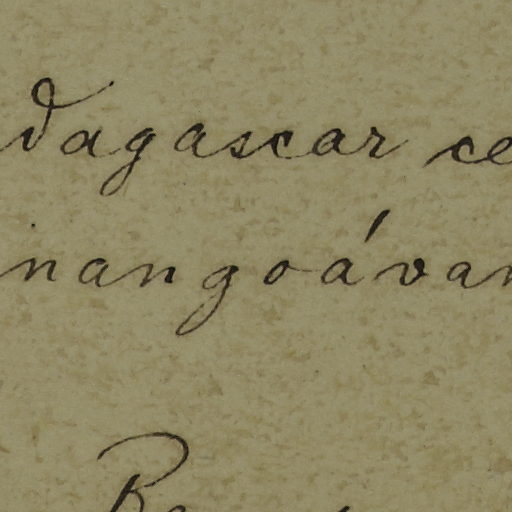 dagascar ce
inangoávan
Be